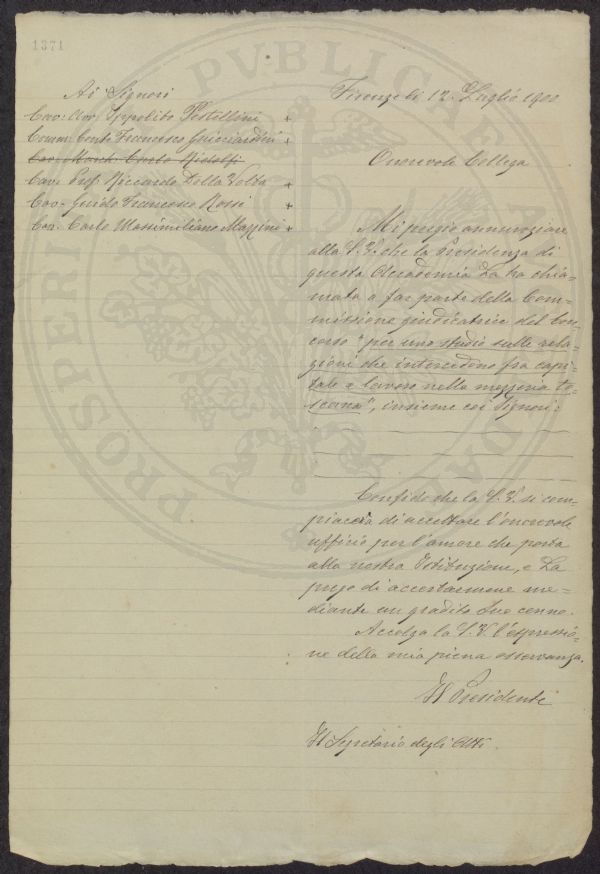 1371
Ai Signori
Cav. Avv. Ippolito Pestellini +
Comm. Conte Francesco Guicciardini +
Cav. March. Carlo Ridolfi
Cav. Prof. Riccardo Della Volta +
Cav. Guido Francesco Rossi +
Cav. Carlo Massimiliano Mazzini +
Firenze li 12. Luglio 1900
Onorevole Collega
Mi pregio annunziare
alla S.V. che la Presidenza di
questa Accademia La ha chia=
mata a far parte della Com=
missione giudicatrice del Con=
corso "per uno studio sulle rela
zioni che intercedono fra capi
tale e lavoro nella mezzeria to
scana", insieme coi Signori:
Confido che la S.V. si com=
piaccia di accettare l'onorevole
ufficio per l'amore che porta
alla nostra Istituzione, e La
prego di accertarmene me=
diante un gradito Suo cenno.
Accolga la S.V. l'espressio=
ne della mia piena osservanza.
Il Presidente
Il Segretario degli Atti.
PROSPERITATI PVBLICAE AVGENDAE